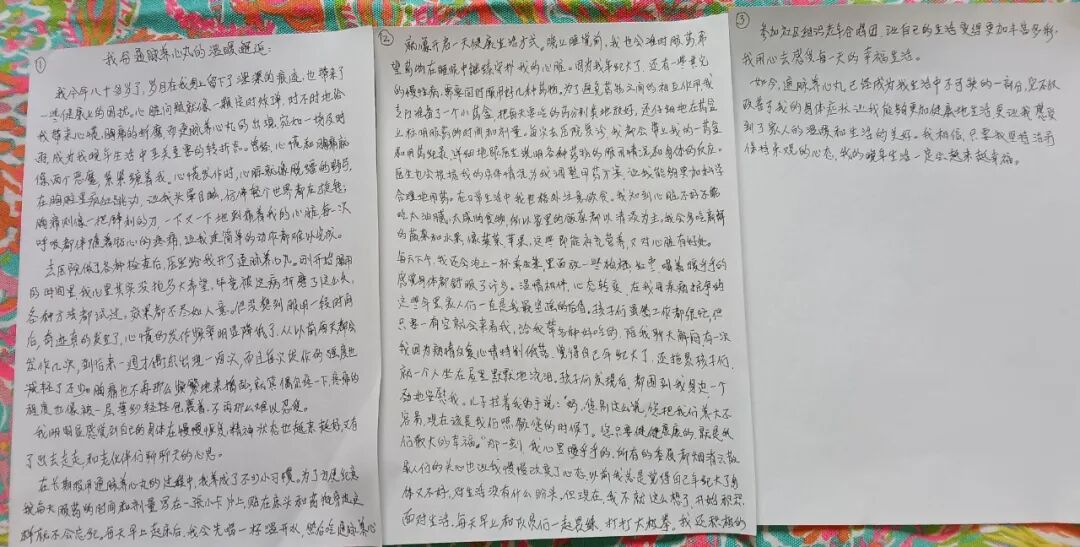 ①
我与通脉养心丸的温暖邂逅:
我今年八十多岁了，岁月在我身上留下了深深的痕迹，也带来了
一些健康上的困扰。心脏问题就像一颗定时炸弹，时不时地给
我带来心慌、胸痛的折磨。而通脉养心丸的出现，宛如一场及时
雨，成为我晚年生活中至关重要的转折点。曾经，心慌和胸痛就
像两个恶魔，紧紧缠着我。心慌发作时，心脏就像脱缰的野马，
在胸腔里疯狂跳动，让我头晕目眩，仿佛整个世界都在旋转；
胸痛则像一把锋利的刀，一下又一下地刺痛着我的心脏，每一次
呼吸都伴随着钻心的疼痛，让我连简单的动作都难以完成。
去医院做了各种检查后，医生给我开了通脉养心丸。刚开始服用
的时间里，我心里其实没抱多大希望，毕竟被这病折磨了这么久，
各种方法都试过，效果都不尽如人意。但没想到服用一段时间
后，奇迹真的发生了，心慌的发作频率明显降低了，从以前每天都会
发作几次，到后来一週才偶尔出现一两次，而且每次发作的强度也
减轻了不少。胸痛也不再那么频繁地来捣乱，就算偶尔疼一下，疼痛的
程度也像被一层薄纱轻轻包裹着，不再那么难以忍受。
我明显感觉到自己的身体在慢慢恢复，精神状态也越来越好，又有
了出去走走，和老伙伴们聊聊天的心思。
在长期服用通脉养心丸的过程中，我养成了不少小习惯。为了方便记忆
我每天服药的时间和剂量写在一张小卡片上，贴在床头和药瓶旁边，这
样就不会忘记。每天早上起床后，我会先喝一杯温开水，然后吃通脉养心
②
丸，开启一天健康生活方式。晚上睡觉前，我也会准时服药，希
望药物在睡眠中继续守护我的心脏。因为我年纪大了，还有一些其它
的慢性病，需要同时服用好几种药物。为了避免药物之间的相互作用，我
专门准备了一个小药盒，把每天要吃的药分类放好，还仔细地在药盒
上标明服药的时间和剂量。每次去医院复诊，我都会带上我的一药盒
和用药记录，详细地跟医生说明各种药物的服用情况和身体的反应。
医生也会根据我的具体情况为我调整用药方案，让我能够更加科学
合理地用药。在日常生活中我也格外注意饮食。我知道心脏不好不能
吃太油腻、太咸的食物，所以家里的饭菜都以清淡为主，我会多吃新鲜
的蔬菜和水果，像菠菜、苹果，这些即能补充营养，又对心脏有好处。
每天下午，我还会泡上一杯养生茶，里面放一些枸杞、红枣，喝着暖乎乎的
感觉身体都舒服了许多。温情相伴，心态转变，在我与疾病抗争的
这些年里，家人们一直是我最坚强的后盾。孩子们虽然工作都很忙，但
只要一有空就会来看我，给我带各种好吃的，陪我聊天解闷。有一次
我因为病情反复心情特别低落，觉得自己年纪大了，还拖累孩子们，
就一个人坐在屋里默默地流泪。孩子们发现后，都围到我身边，一个
劲地安慰我。儿子拉着我的手说：“妈，您别这么说，您把我们养大不
容易，现在该是我们照顾您的时候了。您只要健健康康的，就是我
们最大的幸福。”那一刻，我心里暖乎乎的，所有的委屈都烟消云散。
家人们的关心也让我慢慢改变了心态，以前我总是觉得自己年纪大了身
体又不好，对生活没有什么盼头，但现在，我不就这么想了，开始积极
面对生活，每天早上和队员们一起晨练、打打太极拳。我还积极的
③
参加社区组织老年合唱团，让自己的生活变得更加丰富多彩，
我用心去感受每一天的幸福生活。
如今，通脉养心丸已经成为我生活中不可缺的一部分，它不仅
改善了我的身体症状，让我能够更加健康地生活，更让我感受
到了家人的温暖和生活的美好。我相信，只要我坚持治疗
保持乐观的心态，我的晚年生活一定会越来越幸福。